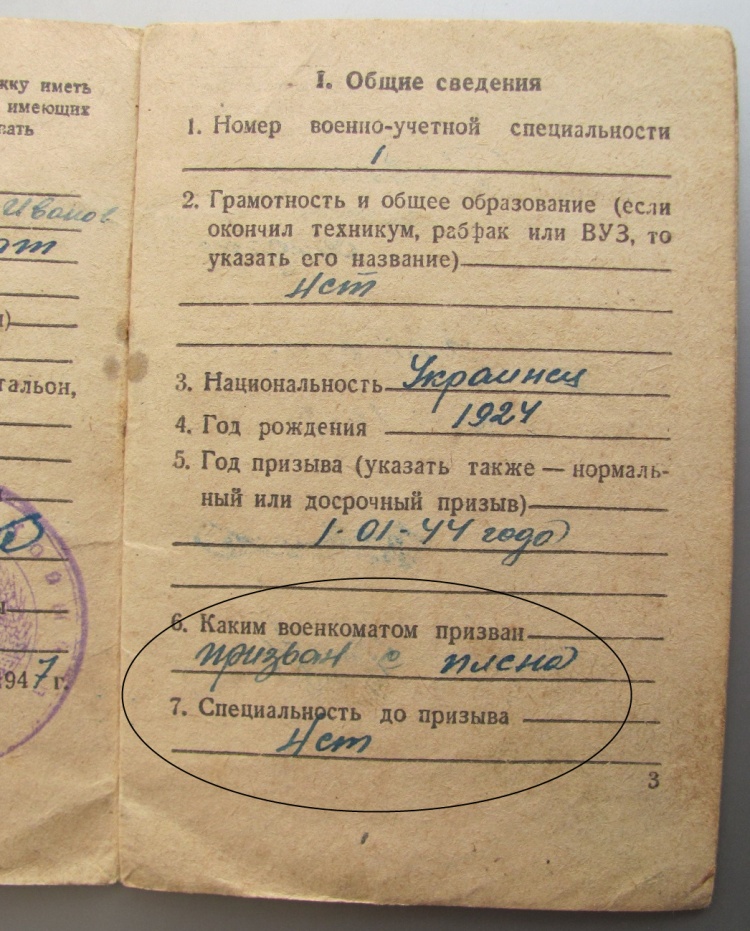 жку иметь
имеющих
вать
Иванов
и)
тальон,
1947 г.
I. Общие сведения
1. Номер военно-учетной специальности
1
2. Грамотность и общее образование (если
окончил техникум, рабфак или ВУЗ, то
указать его название)
Нет
3. Национальность Украинец
4. Год рождения 1924
5. Год призыва (указать также — нормаль-
ный или досрочный призыв)
1-01-44 года
6. Каким военкоматом призван
призван с плена
7. Специальность до призыва
Нет
3